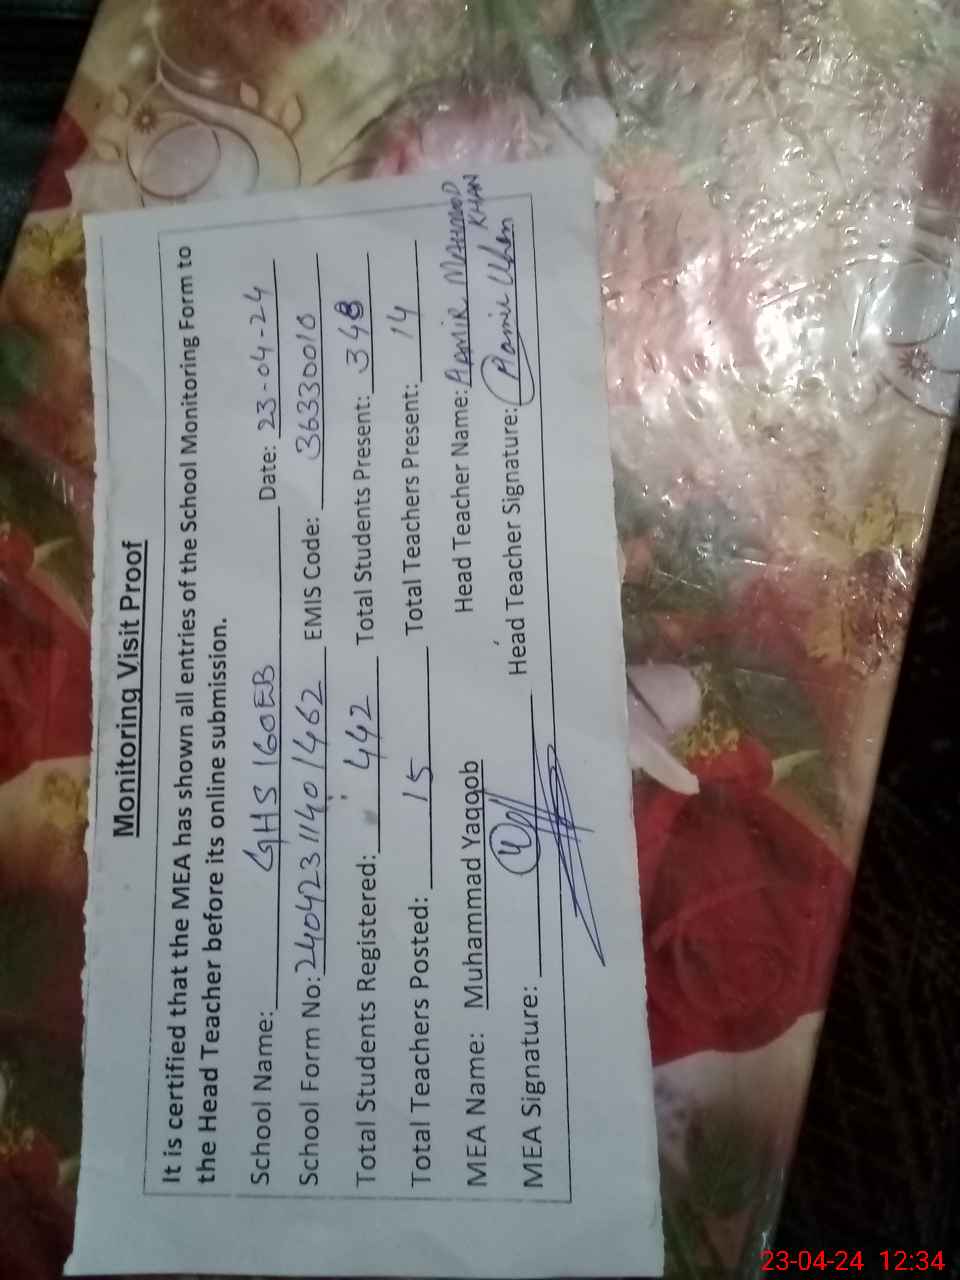 Monitoring Visit Proof
It is certified that the MEA has shown all entries of the School Monitoring Form to
the Head Teacher before its online submission.
School Name: GHS 160EB Date: 23-04-24
School Form No: 24042311401462 EMIS Code: 36330010
Total Students Registered: 442 Total Students Present: 348
Total Teachers Posted: 15 Total Teachers Present: 14
MEA Name: Muhammad Yaqoob Head Teacher Name: AAMIR MAHMOOD KHAN
MEA Signature: Head Teacher Signature: Aamir Khan
23-04-24 12:34